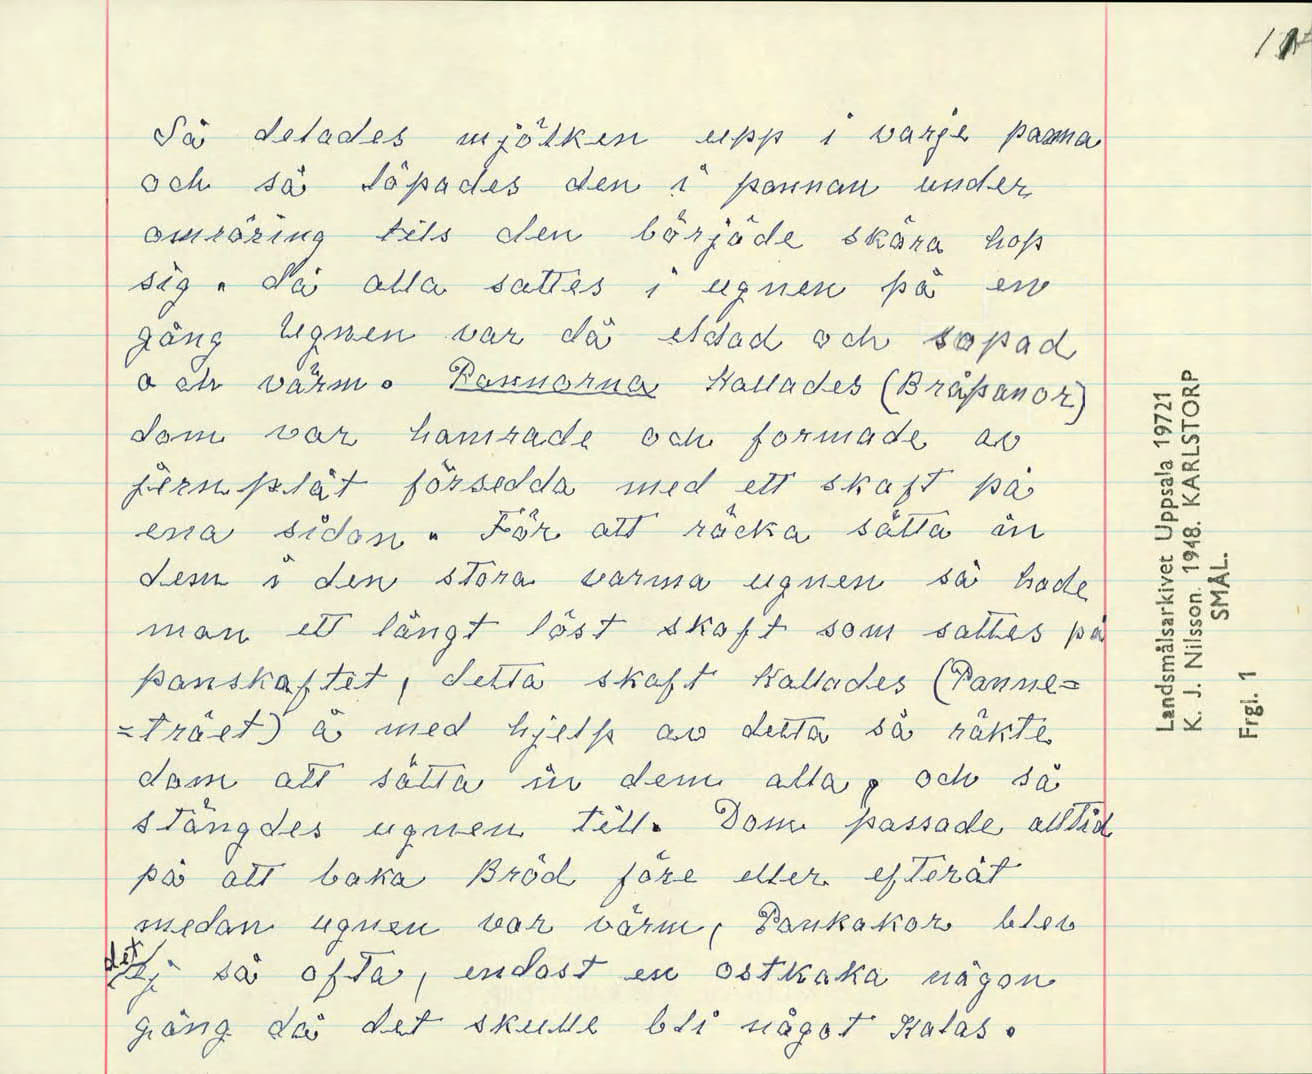 Så delades mjölken upp i varje panna
och så löpades den i pannan under
omröring tils den började skära hop
sig. Då alla sattes i ugnen på en
gång Ugnen var då eldad och sopad
och värm. Pannorna Kallades (Bråpanor)
dom var hamrade och formade av
jernplåt försedda med ett skaft på
ena sidan. För att räcka sätta in
dem i den stora varma ugnen så hade
man ett långt löst skaft som sattes på
panskaftet, detta skaft Kallades (Panne=
=träet) å med hjelp av detta så räkte
dom att sätta in dem alla, och så
stängdes ugnen till. Dom passade alltid
på att baka Bröd före eller efteråt
medan ugnen var värm, Pankakor blev
det ej så ofta, endast en ostkaka någon
gång då det skulle bli något Kalas.
Landsmålsarkivet Uppsala 19721
K. J. Nilsson. 1948. KARLSTORP
SMÅL.
Frgl. 1